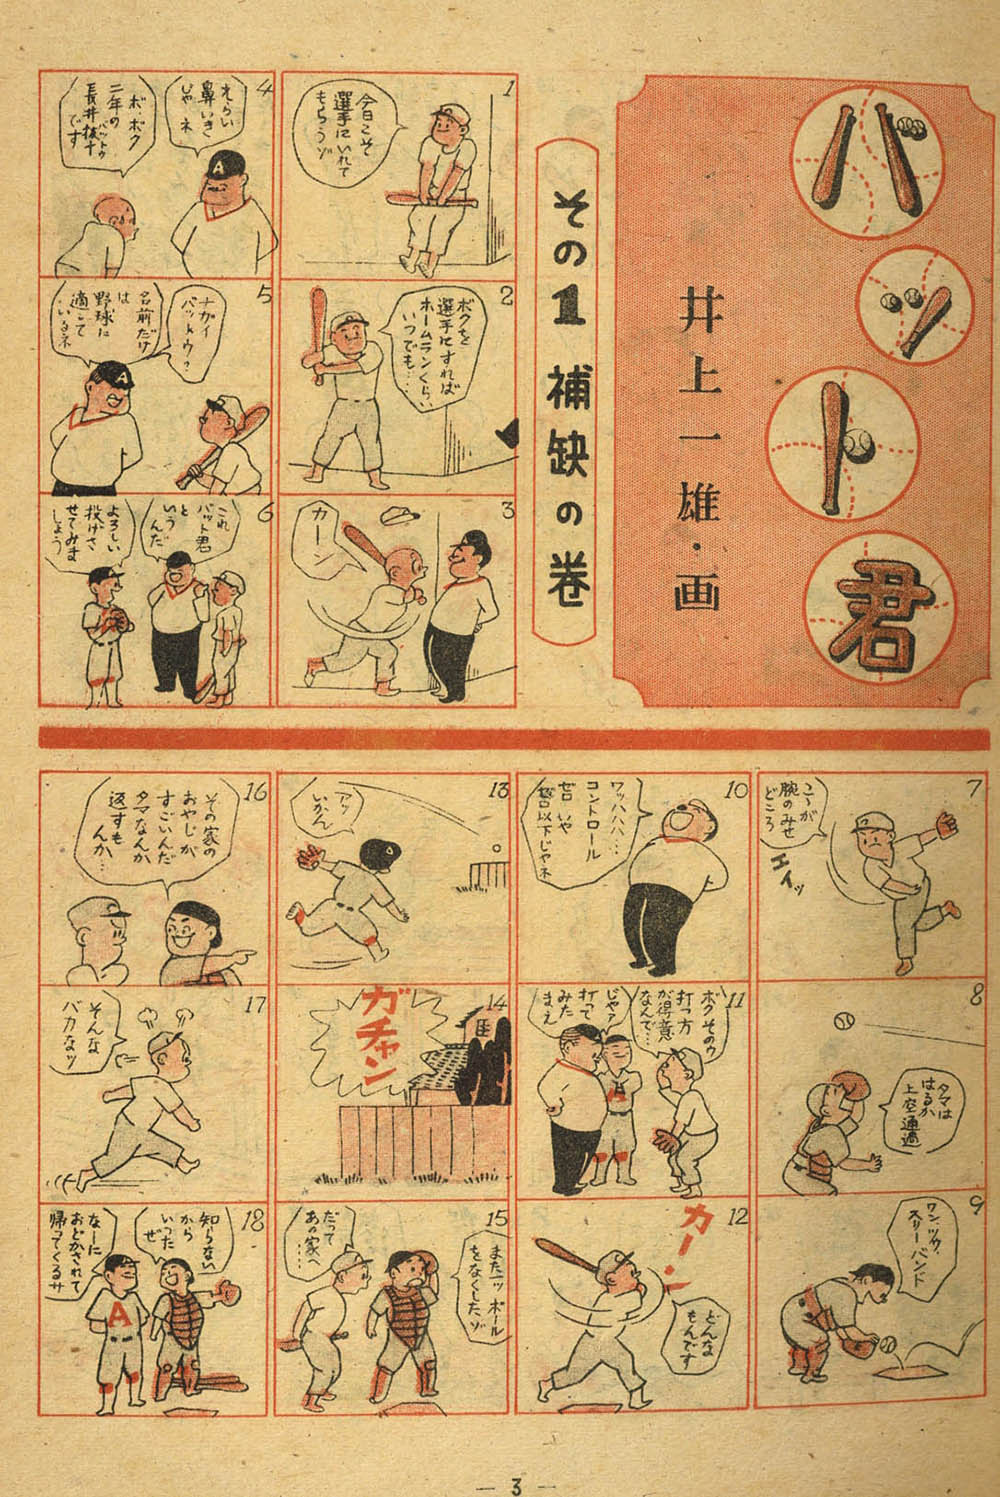 バット君
井上一雄・画
その1 補欠の巻
1
今日こそ
選手にいれて
もらうゾ
2
ボクを
選手にすれば
ホームランくらい
いつでも…
3
カーン
4
えらい
鼻いき
じゃネ
ボ、ボク
二年の
長井抜十
バットゥ
です
5
ナガイ
バットウ?
名前だけ
は
野球に
適して
いるネ
6
これ
バット君
と
いう
んだ
よろしい
投げさ
せてみま
しょう
7
こゝが
腕のみせ
どころ
エイッ
8
タマは
はるか
上空通過
9
ワン、ツウ、
スリーバンド
10
ワッハハハ…
コントロール
甘いや
甘以下じゃネ
11
ボクそのウ
打つ方
が得意
なんで…
じゃア
打って
みた
まえ
12
カーン
どんな
もんです
13
アッ
いかん
14
ガチャン
15
また一ツボール
をなくしたゾ
だって
あの家へ
…
16
その家の
おやじが
すごいんだ
タマなんか
返すも
んか…
17
そんな
バカなッ
18
知らない
から
いった
ぜ
なーに
おどかされて
帰ってくるサ
— 3 —